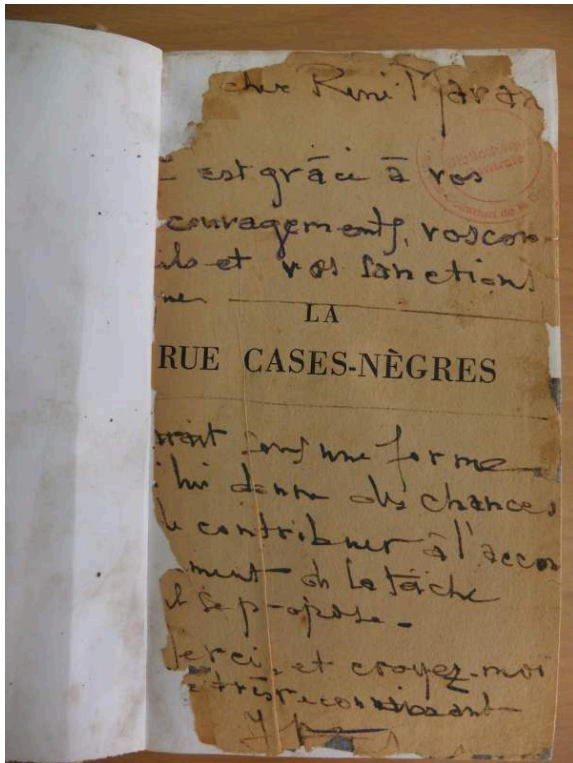 cher René Maran
est grâce à vos
couragements, vos con
ils et vos sanctions
que
LA
RUE CASES-NÈGRES
rait sous une forme
i lui donne des chances
de contribuer à l'accom
ment de la tâche
il se propose.
Merci, et croyez-moi
très reconnaissant